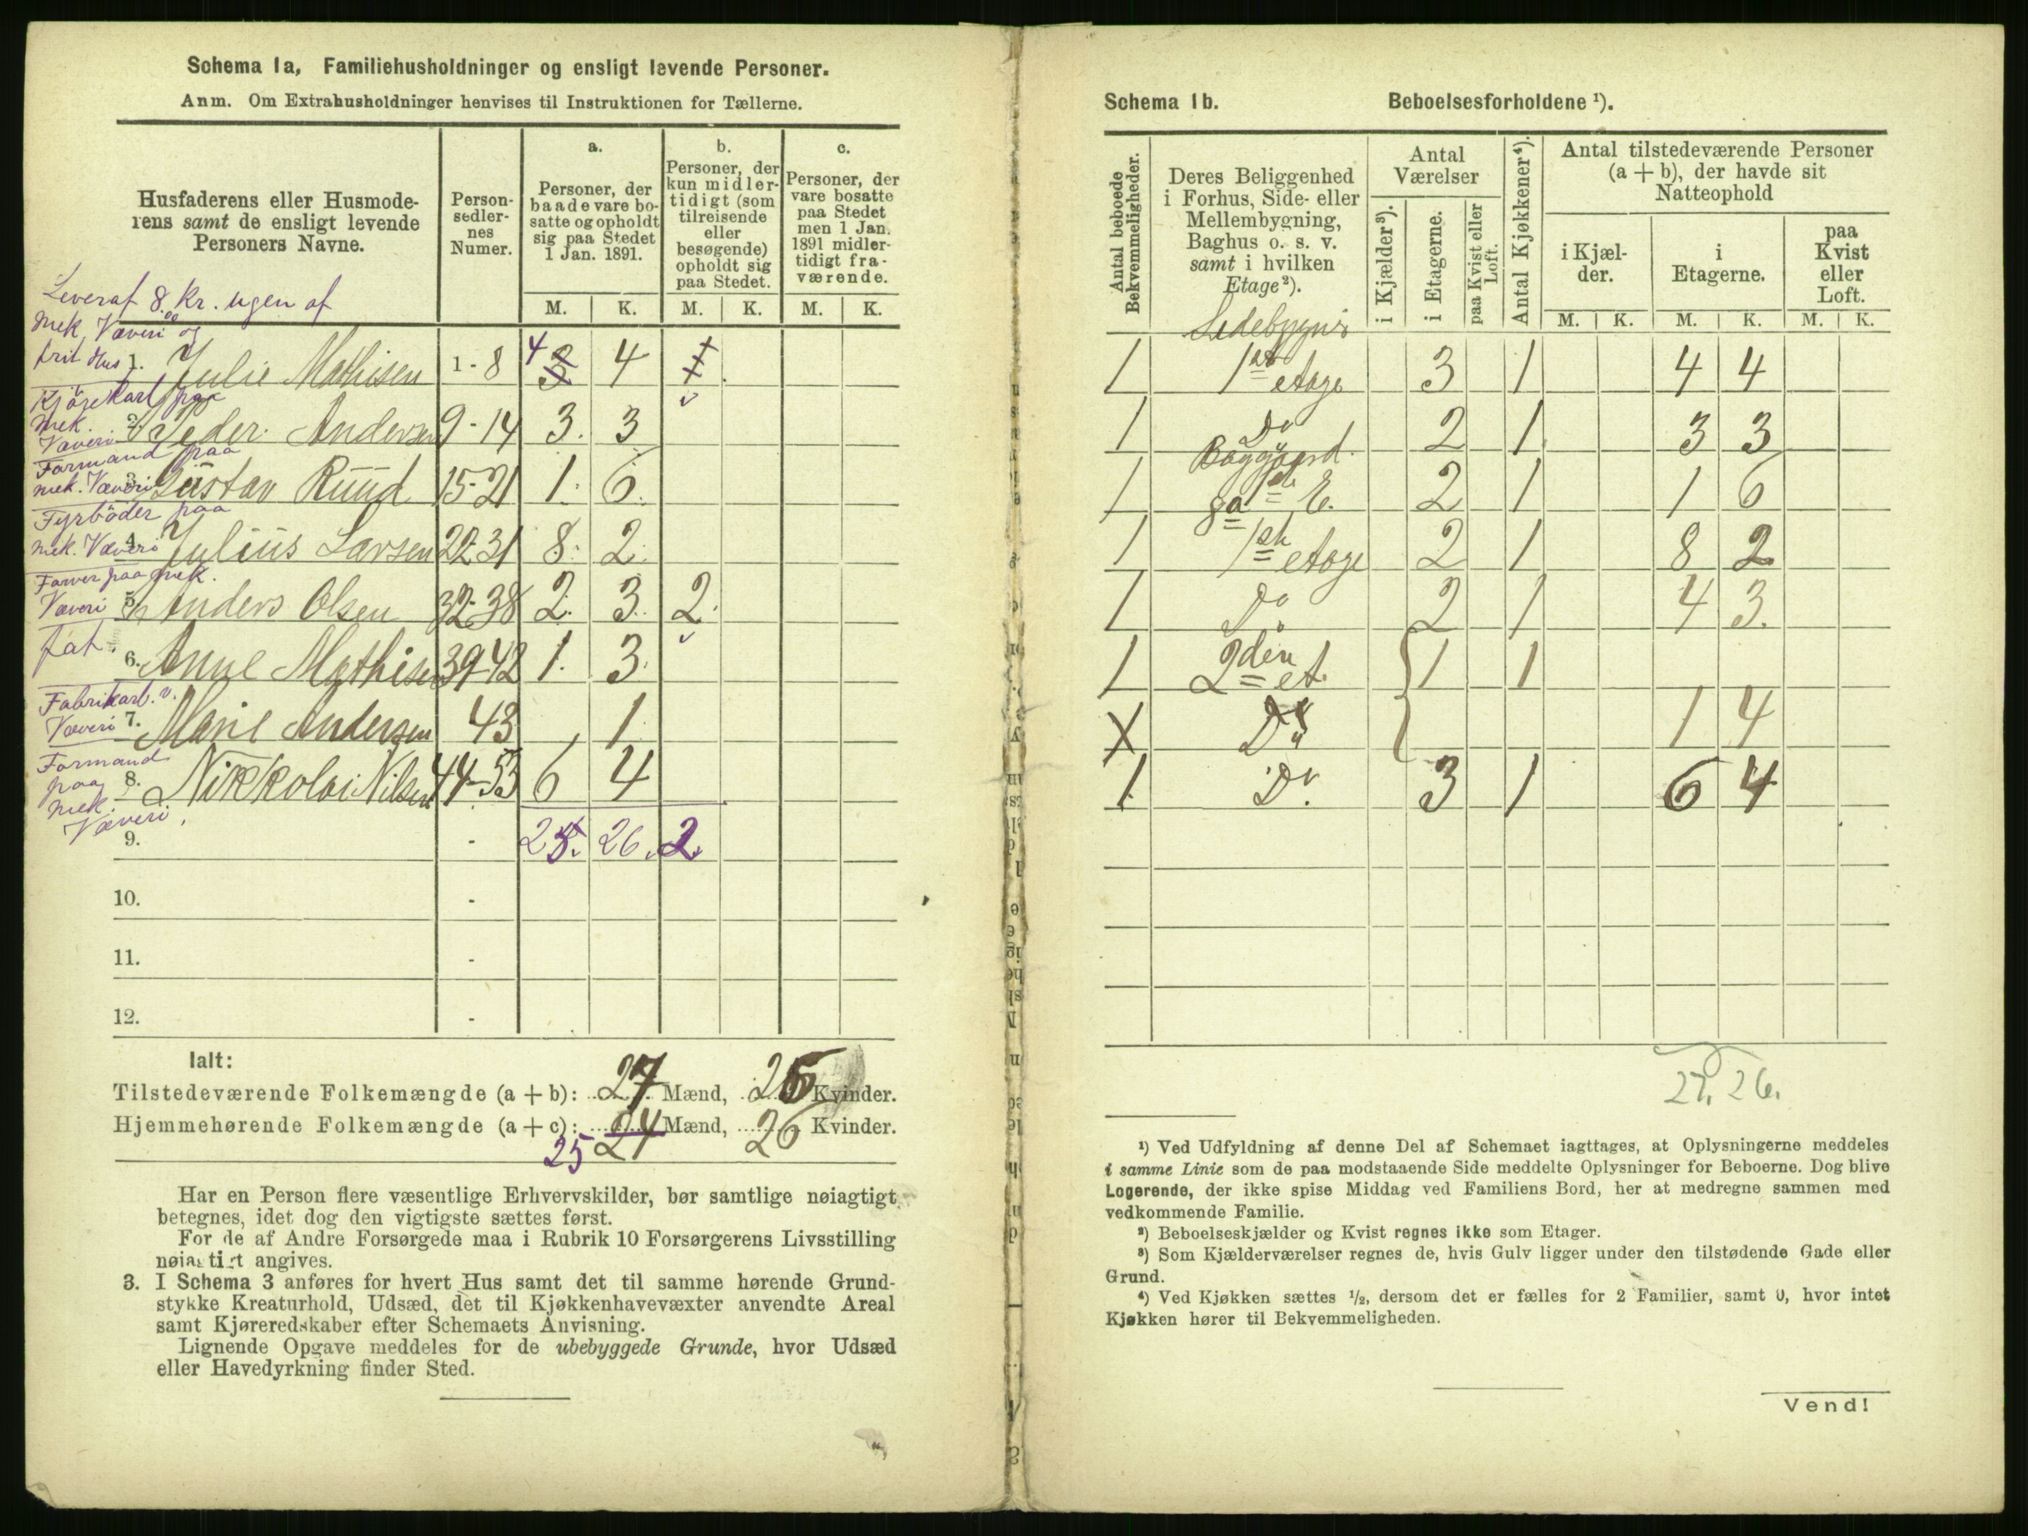 Schema 1a, Familiehusholdninger og ensligt levende Personer.
Anm. Om Extrahusholdninger henvises til Instruktionen for Tællerne.
Husfaderens eller Husmode-
rens samt de ensligt levende
Personers Navne.
Person-
sedler-
nes
Numer.
a.
Personer, der
baade vare bo-
satte og opholdt
sig paa Stedet
1 Jan. 1891.
b.
Personer, der
kun midler-
tidigt (som
tilreisende
eller
besøgende)
opholdt sig
paa Stedet.
c.
Personer, der
vare bosatte
paa Stedet
men 1 Jan.
1891 midler-
tidigt fra-
værende.
M. K. M. K. M. K.
Leveraf 8.00 Kr. ugen af
mek. Væveri og
frit Hus
1. Julie Mathisen 1-8 4 3 4 1
Kjørekarl paa
mek.
Væveri
2. Peder Andersen 9-14 3. 3
Formand paa
mek. Væveri
3. Gustav Ruud 15-21 1. 6.
Fyrbøder paa
mek. Væveri
4. Julius Larsen 22-31 8. 2.
Farver paa mek.
Væveri
5. Anders Olsen 32-38 2. 3. 2.
fat.
6. Anne Mathisen 39-42 1. 3.
Fabrikarb. v.
Væveri
7. Marie Andersen 43 , 1
Formand
paa
mek.
Væveri.
8. Nikkolai Nilsen 44-53 6 4
9. - 25. 26. 2.
10. -
11. -
12. -
Ialt:
Tilstedeværende Folkemængde (a + b): 27 Mænd, 26 Kvinder.
Hjemmehørende Folkemængde (a + c): 24 Mænd, 26 Kvinder.
25
Har en Person flere væsentlige Erhvervskilder, bør samtlige nøiagtigt
betegnes, idet dog den vigtigste sættes først.
For de af Andre Forsørgede maa i Rubrik 10 Forsørgerens Livsstilling
nøiagtigt angives.
3. I Schema 3 anføres for hvert Hus samt det til samme hørende Grund-
stykke Kreaturhold, Udsæd, det til Kjøkkenhavevæxter anvendte Areal
samt Kjøreredskaber efter Schemaets Anvisning.
Lignende Opgave meddeles for de ubebyggede Grunde, hvor Udsæd
eller Havedyrkning finder Sted.
Schema 1b. Beboelsesforholdene ¹).
Antal beboede
Bekvemmeligheder.
Deres Beliggenhed
i Forhus, Side- eller
Mellembygning,
Baghus o. s. v.
samt i hvilken
Etage²).
Antal
Værelser
i Kjælder³).
i Etagerne.
paa Kvist eller
Loft.
Antal Kjøkkener⁴).
Antal tilstedeværende Personer
(a + b), der havde sit
Natteophold
i Kjæl-
der.
i
Etagerne.
paa
Kvist
eller
Loft.
M. K. M. K. M. K.
Sidebygn.
1 1ste etage 3 1 4 4
1 Do 2 1 3 3
Baggaard.
1 1ste E. 2 1 1 6
1 1ste etage 2 1 8 2
1 Do 2 1 4 3.
1 2den et. 1 1
X Do 1 4
1 Do. 3 1 6 4
27. 26.
¹) Ved Udfyldning af denne Del af Schemaet iagttages, at Oplysningerne meddeles
i samme Linie som de paa modstaaende Side meddelte Oplysninger for Beboerne. Dog blive
Logerende, der ikke spise Middag ved Familiens Bord, her at medregne sammen med
vedkommende Familie.
²) Beboelseskjælder og Kvist regnes ikke som Etager.
³) Som Kjælderværelser regnes de, hvis Gulv ligger under den tilstødende Gade eller
Grund.
⁴) Ved Kjøkken sættes ½, dersom det er fælles for 2 Familier, samt 0, hvor intet
Kjøkken hører til Bekvemmeligheden.
Vend!